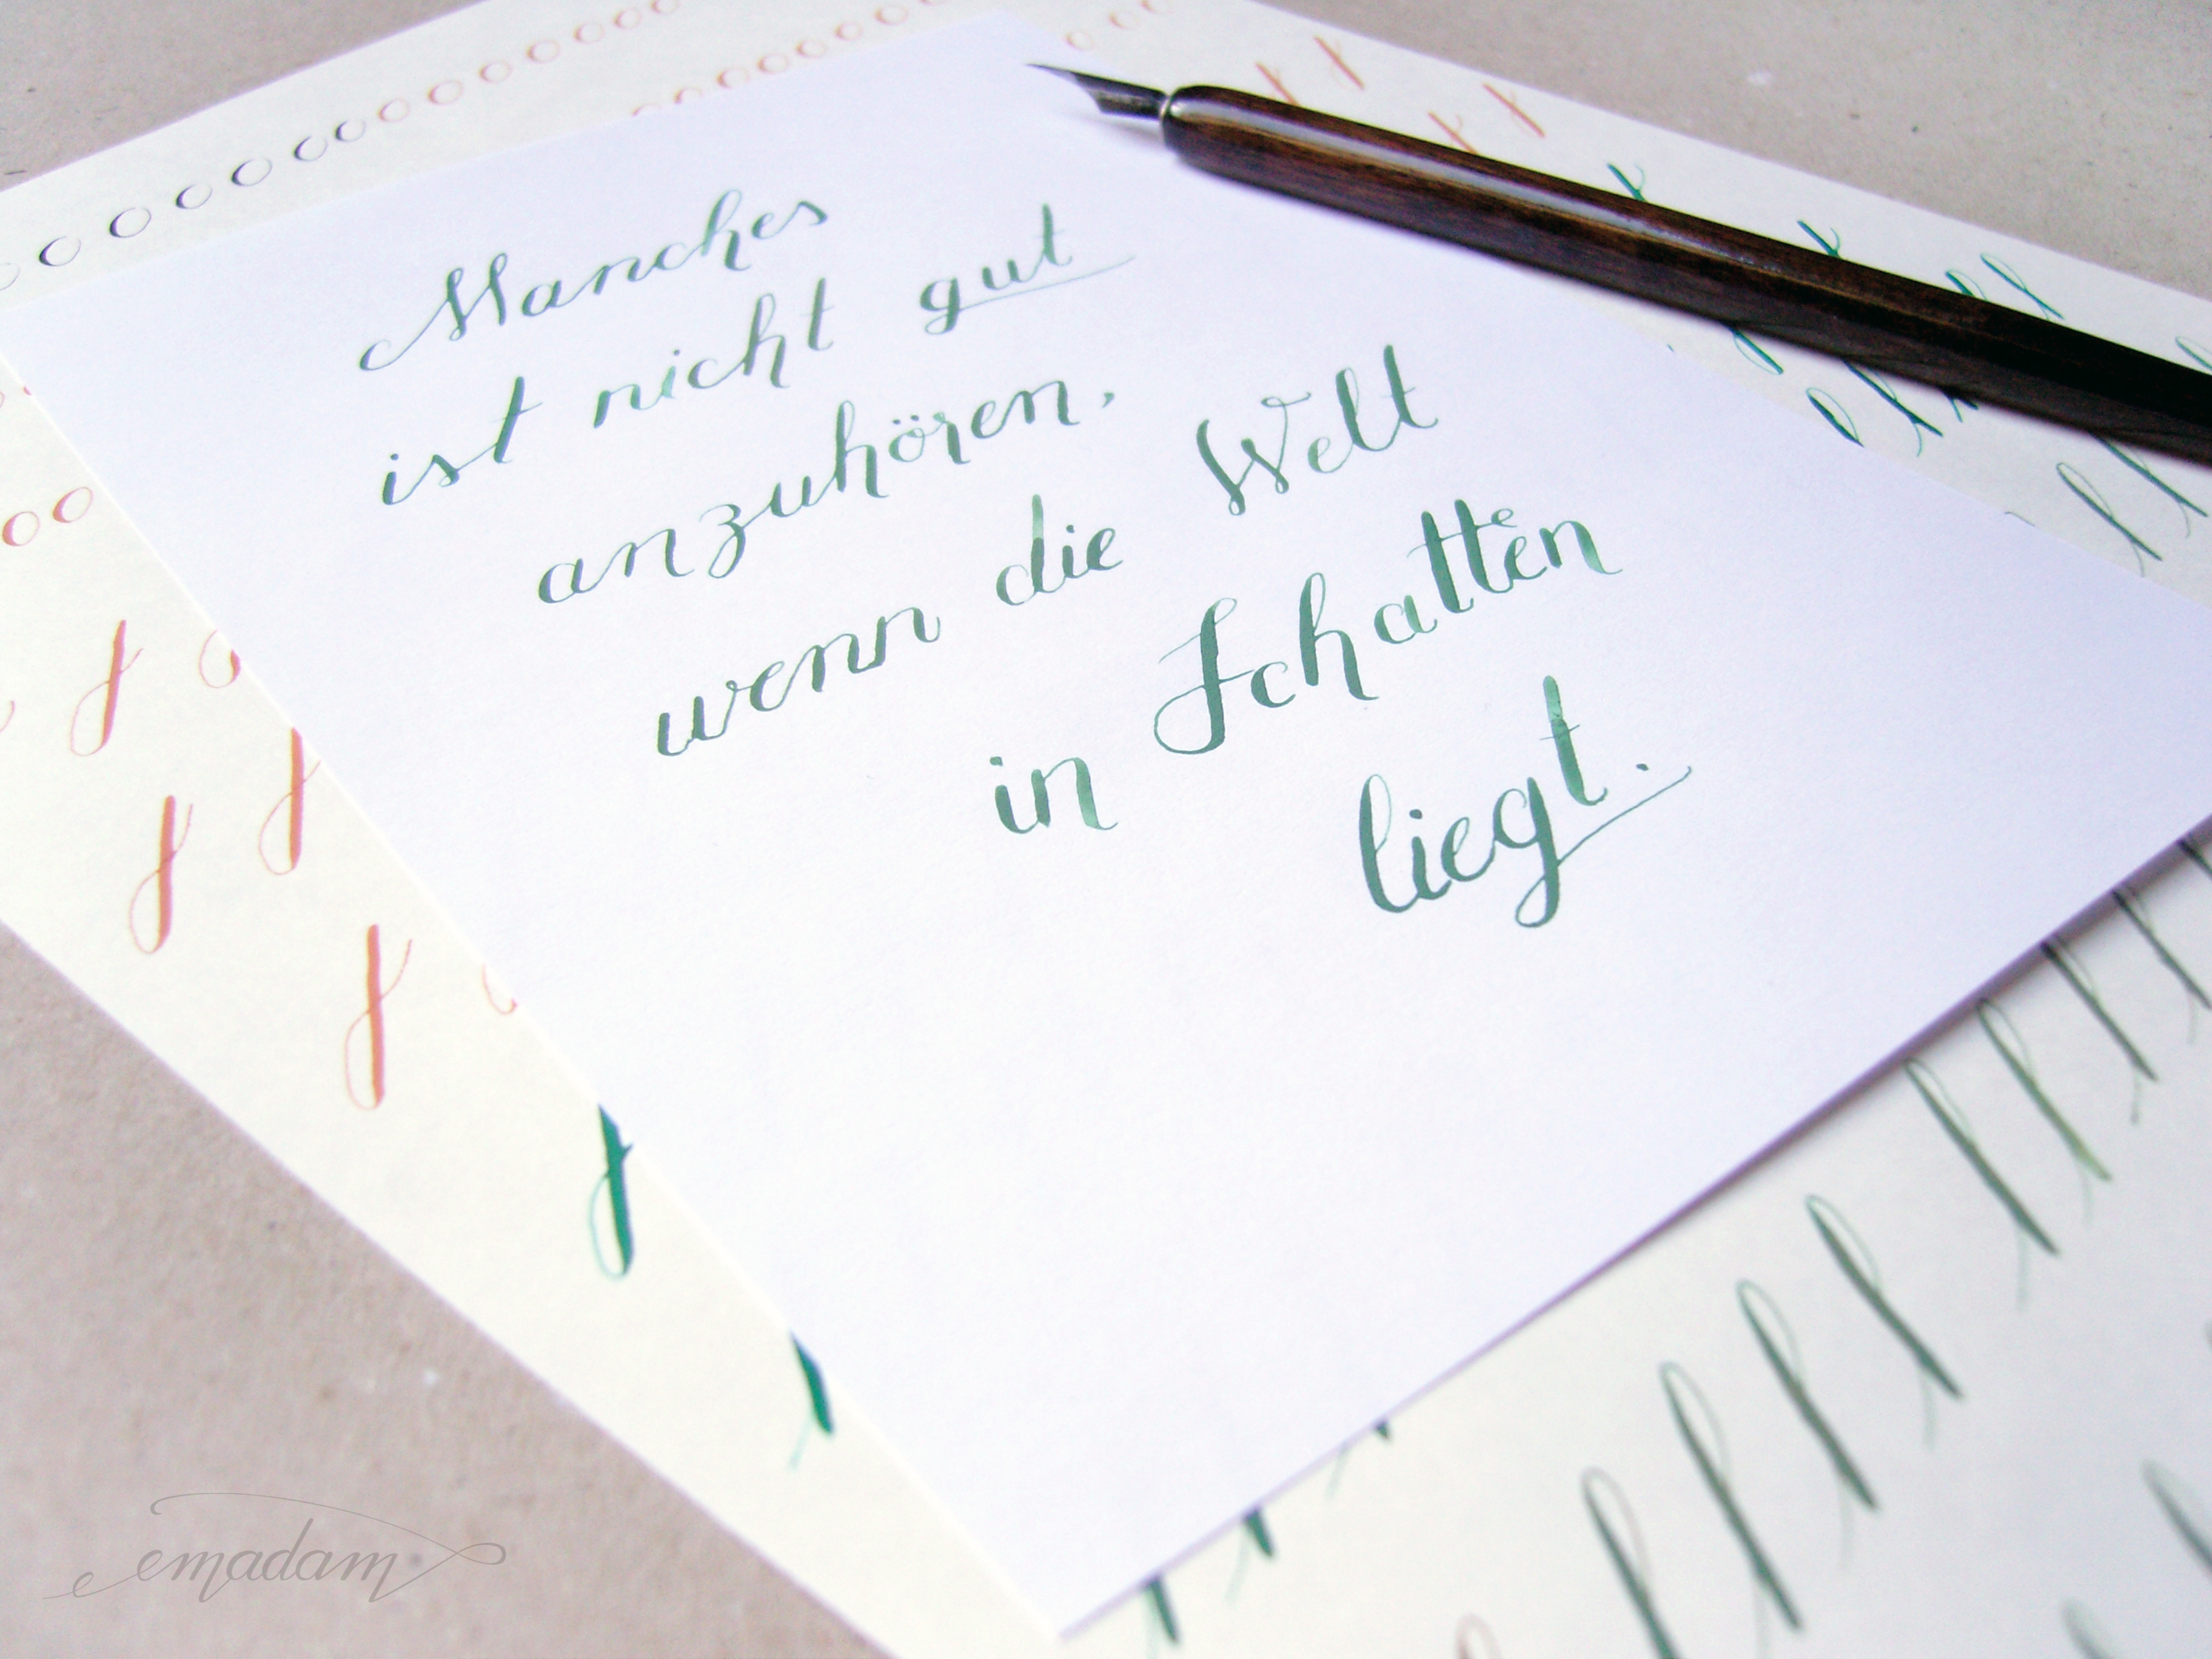 Manches
ist nicht gut
anzuhören,
wenn die Welt
in Schatten
liegt.
emadam